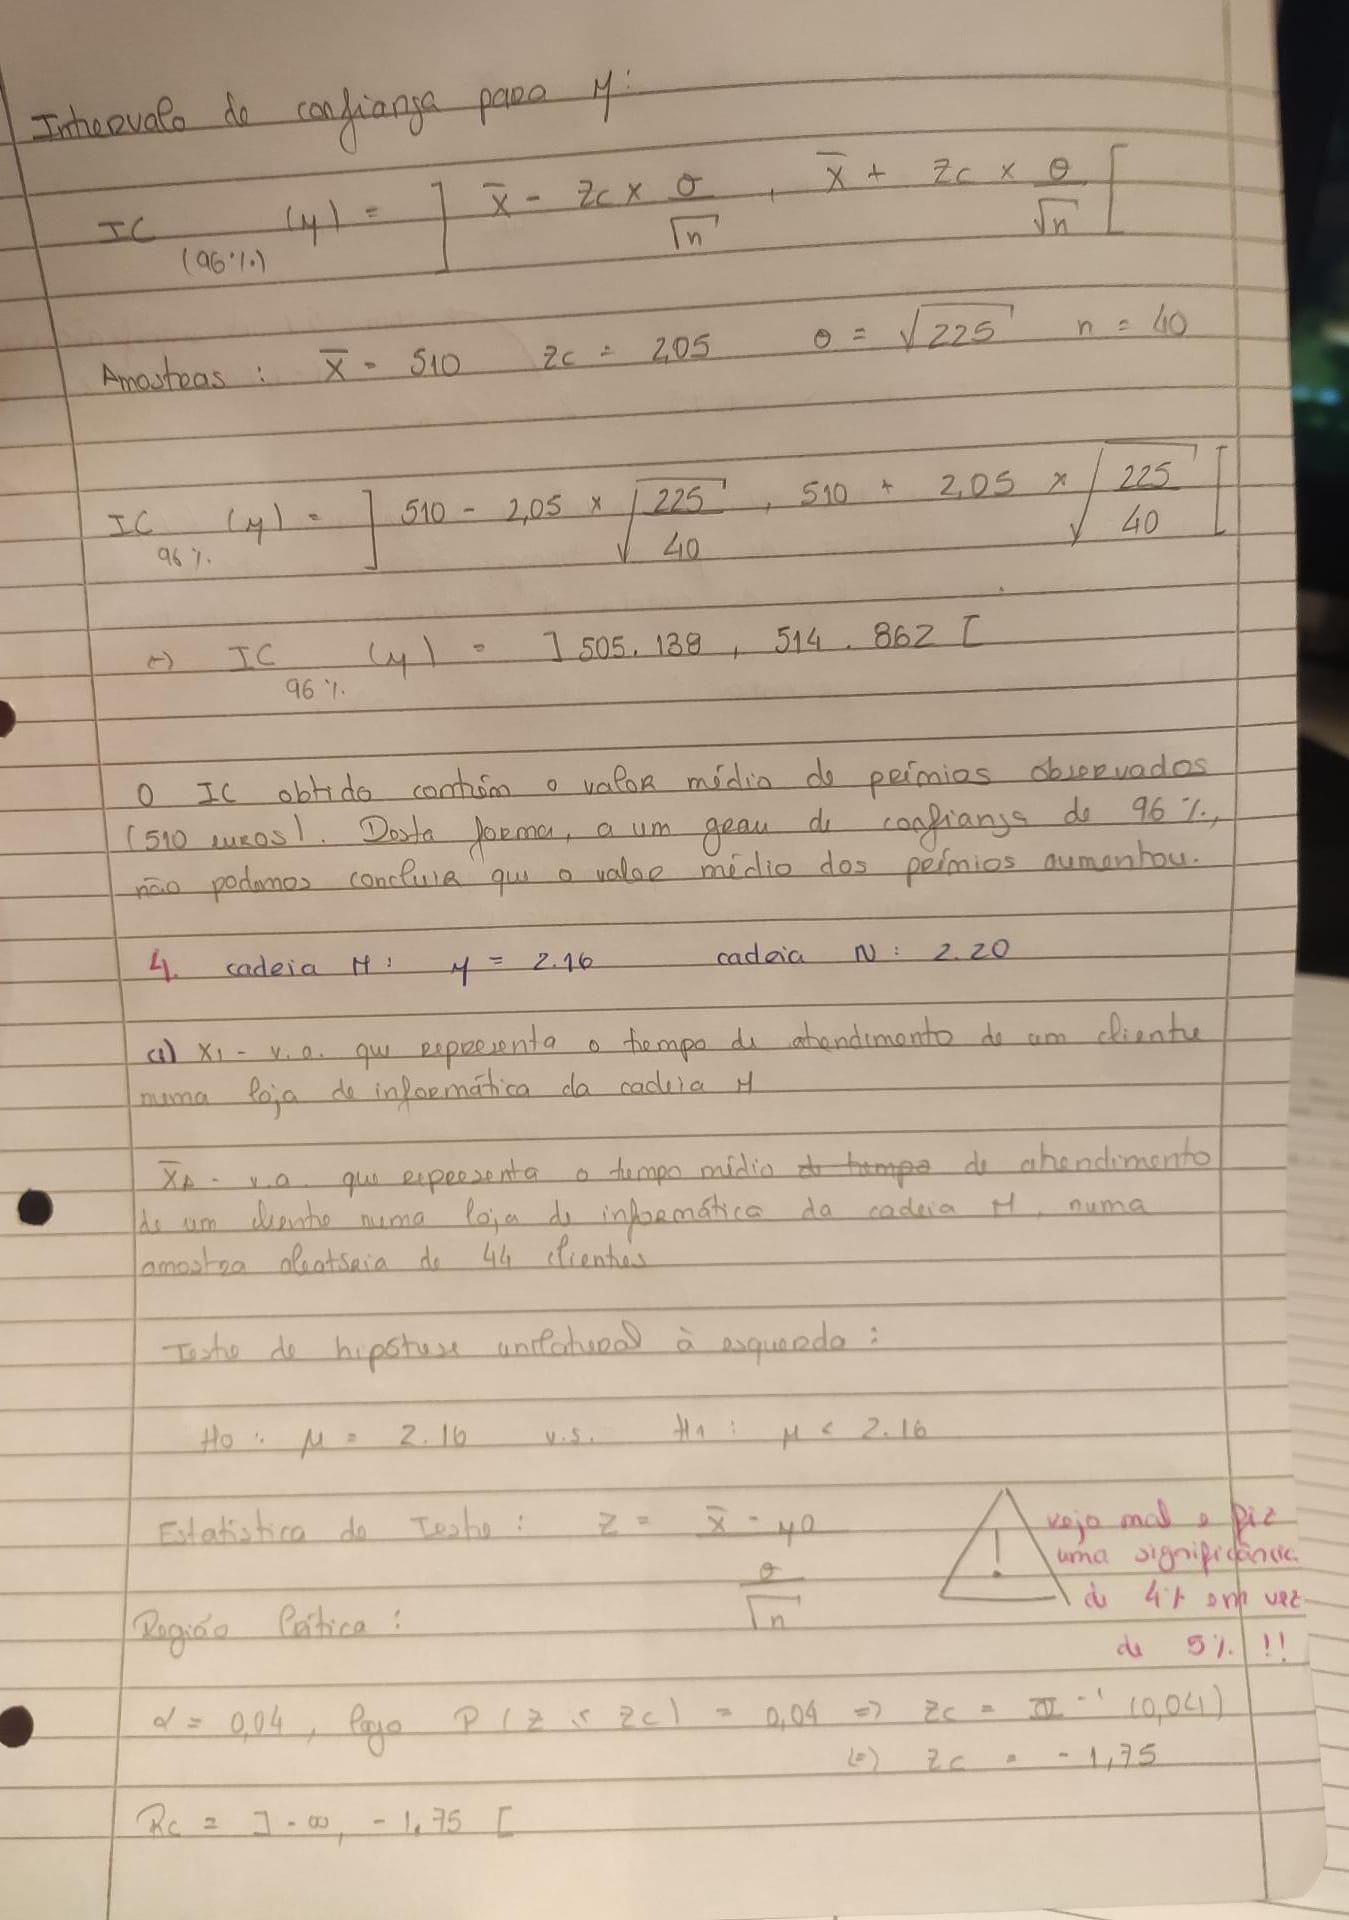 Intervalo de confiança para μ:
IC (96%) (μ) = ] x̄ - zc × σ/√n , x̄ + zc × σ/√n [
Amostras : x̄ = 510 zc = 2,05 σ = √225 n = 40
IC 96% (μ) = ] 510 - 2,05 × √(225/40) , 510 + 2,05 × √(225/40) [
(=) IC 96% (μ) = ] 505.138 , 514.862 [
O IC obtido contém o valor médio de prémios observados
(510 euros). Desta forma, a um grau de confiança de 96%,
não podemos concluir que o valor médio dos prémios aumentou.
4. cadeia M: μ = 2.16 cadeia N: 2.20
a) X1 - v.a. que representa o tempo de atendimento de um cliente
numa loja de informática da cadeia M
X̄1 - v.a. que representa o tempo médio de tempo de atendimento
de um cliente numa loja de informática da cadeia M, numa
amostra aleatória de 44 clientes
Teste de hipótese unilateral à esquerda :
H0 : μ = 2.16 v.s. H1 : μ < 2.16
Estatística de Teste : z = (x̄ - μ0)/(σ/√n)
vejo mal e fiz
uma significância
de 4% em vez
de 5% !!
Região Crítica :
α = 0,04, logo P(Z < zc) = 0,04 => zc = Φ⁻¹ (0,04)
(=) zc = -1,75
Rc = ]-∞, -1.75 [